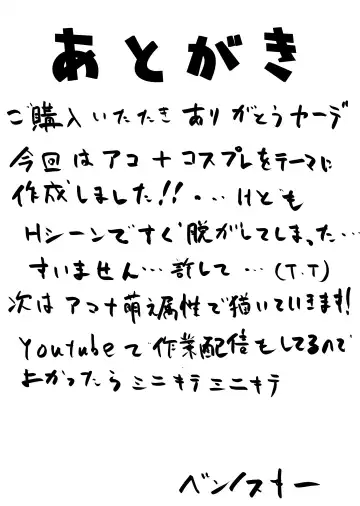 あとがき
ご購入いただきありがとうヤーデ
今回はアコ+コスプレをテーマに
作成しました!!・・・Hとも
Hシーンですぐ脱がしてしまった…
すいません…許して…(T.T)
次はアコ+萌え属性で描いていきます!
Youtubeで作業配信もしてるので
よかったらミニキテミニキテ
ベンノスキー